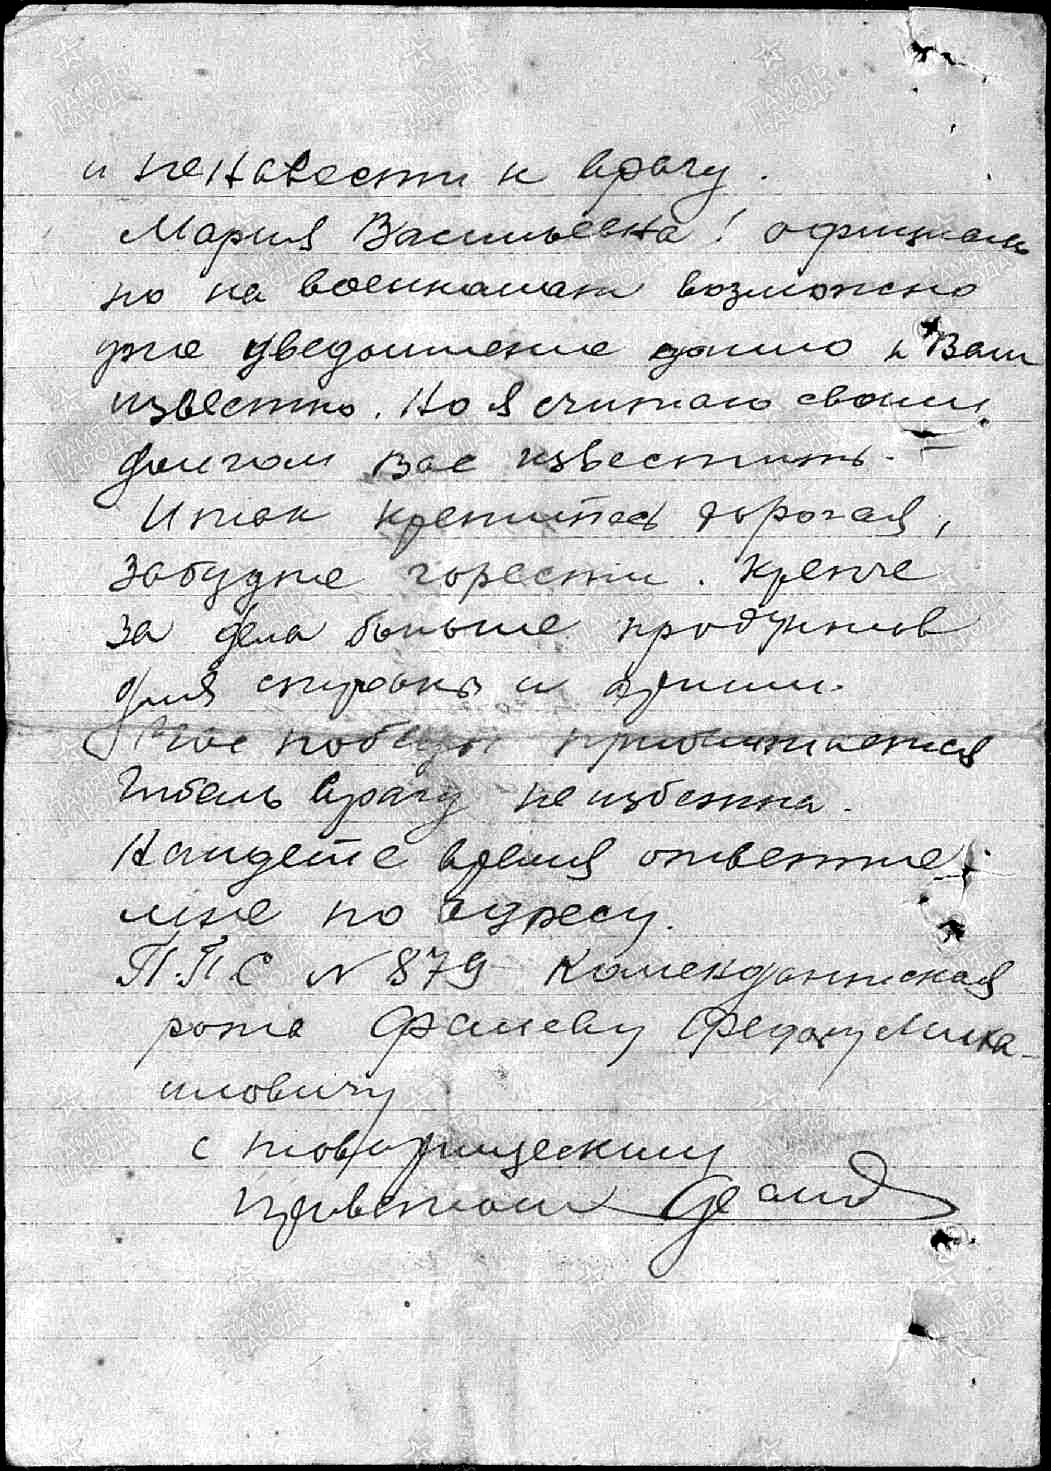 и ненавести к врагу.
Мария Васильевна! официаль
но на военкомат возможно
уже уведомление дошло и Вам
известно. Но я считаю своим
долгом Вас известить.
Итак крепитесь дорогая,
забудте горести. Крепче
за дела больше продуктов
для страны и армии.
Час победы приближается
Гибель врагу неизбежна.
Найдете время ответте
мне по адресу.
П.П.С N 879 Комендантская
рота Фалеву Федору Миха-
иловичу
с товарищеским
приветом